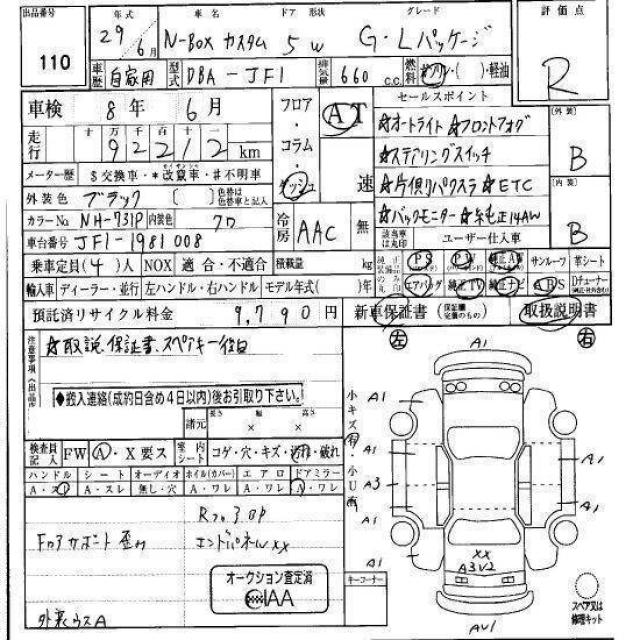 出品番号 年式 車名 ドア 形状 グレード 評価点
110 29 6月 N-BOX カスタム 5 W G・Lパッケージ R
車歴 自家用 型式 DBA-JF1 排気量 660 c.c. 燃料 ガソリン・( )・軽油
車検 8年 6月 フロア・コラム・ダッシュ AT 速 セールスポイント
走行 十万千百十一 92212 km
☆オートライト ☆フロントフォグ
外装 B
☆ステアリングスイッチ
メーター歴 $交換車・*改竄車・#不明車
☆片側パワスラ ☆ETC
内装 B
外装色 ブラック ( ) 色替は色替車と記入
☆バックモニター ☆純正14AW
カラーNo NH-731P 内装色 クロ 冷房 AAC 無
該当車は丸印 ユーザー仕入車
車台番号 JF1-1981008
乗車定員(4)人 NOX 適合・不適合 積載量 kg
PS PW 純正AW サンルーフ 革シート
輸入車 ディーラー・並行 左ハンドル・右ハンドル モデル年式( )年
エアバッグ 純正TV 純正ナビ ABS Dチューナー
預託済リサイクル料金 9,790円 新車保証書(保証欄定義のもの) 取扱説明書
注意事項(出品店) ☆取説、保証書、スペアキー後日
◆搬入連絡(成約日含め4日以内)後お引取り下さい。
諸元 長さ 幅 高さ
× ×
検査員記入 FW A・X要ス 室内シート コゲ・穴・キズ・汚れ・破れ
ハンドル シート オーディオ ホイル(カバー) エアロ ドアミラー
A・スレ A・スレ 無し・穴 A・ワレ A・ワレ A・ワレ
Rフロアロ
Fロアサポート歪み エンドパネルXX
外装ウスA
オークション査定済
IAA
左 右
A1
A1
A1
A3
A1
A1
A1
A1
A1
XX
A3V2
AU1
小キズ有・小U有
キーコーナー
スペア又は
修理キット